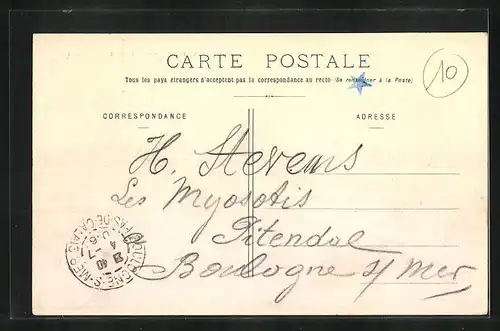 CARTE POSTALE
Tous les pays étrangers n'acceptent pas la correspondance au recto (Se renseigner à la Poste)
10
CORRESPONDANCE
ADRESSE
H. Stevens
Les Myosotis
Pitendal
Boulogne s/mer
BOULOGNE-S-MER PAS-DE-CALAIS